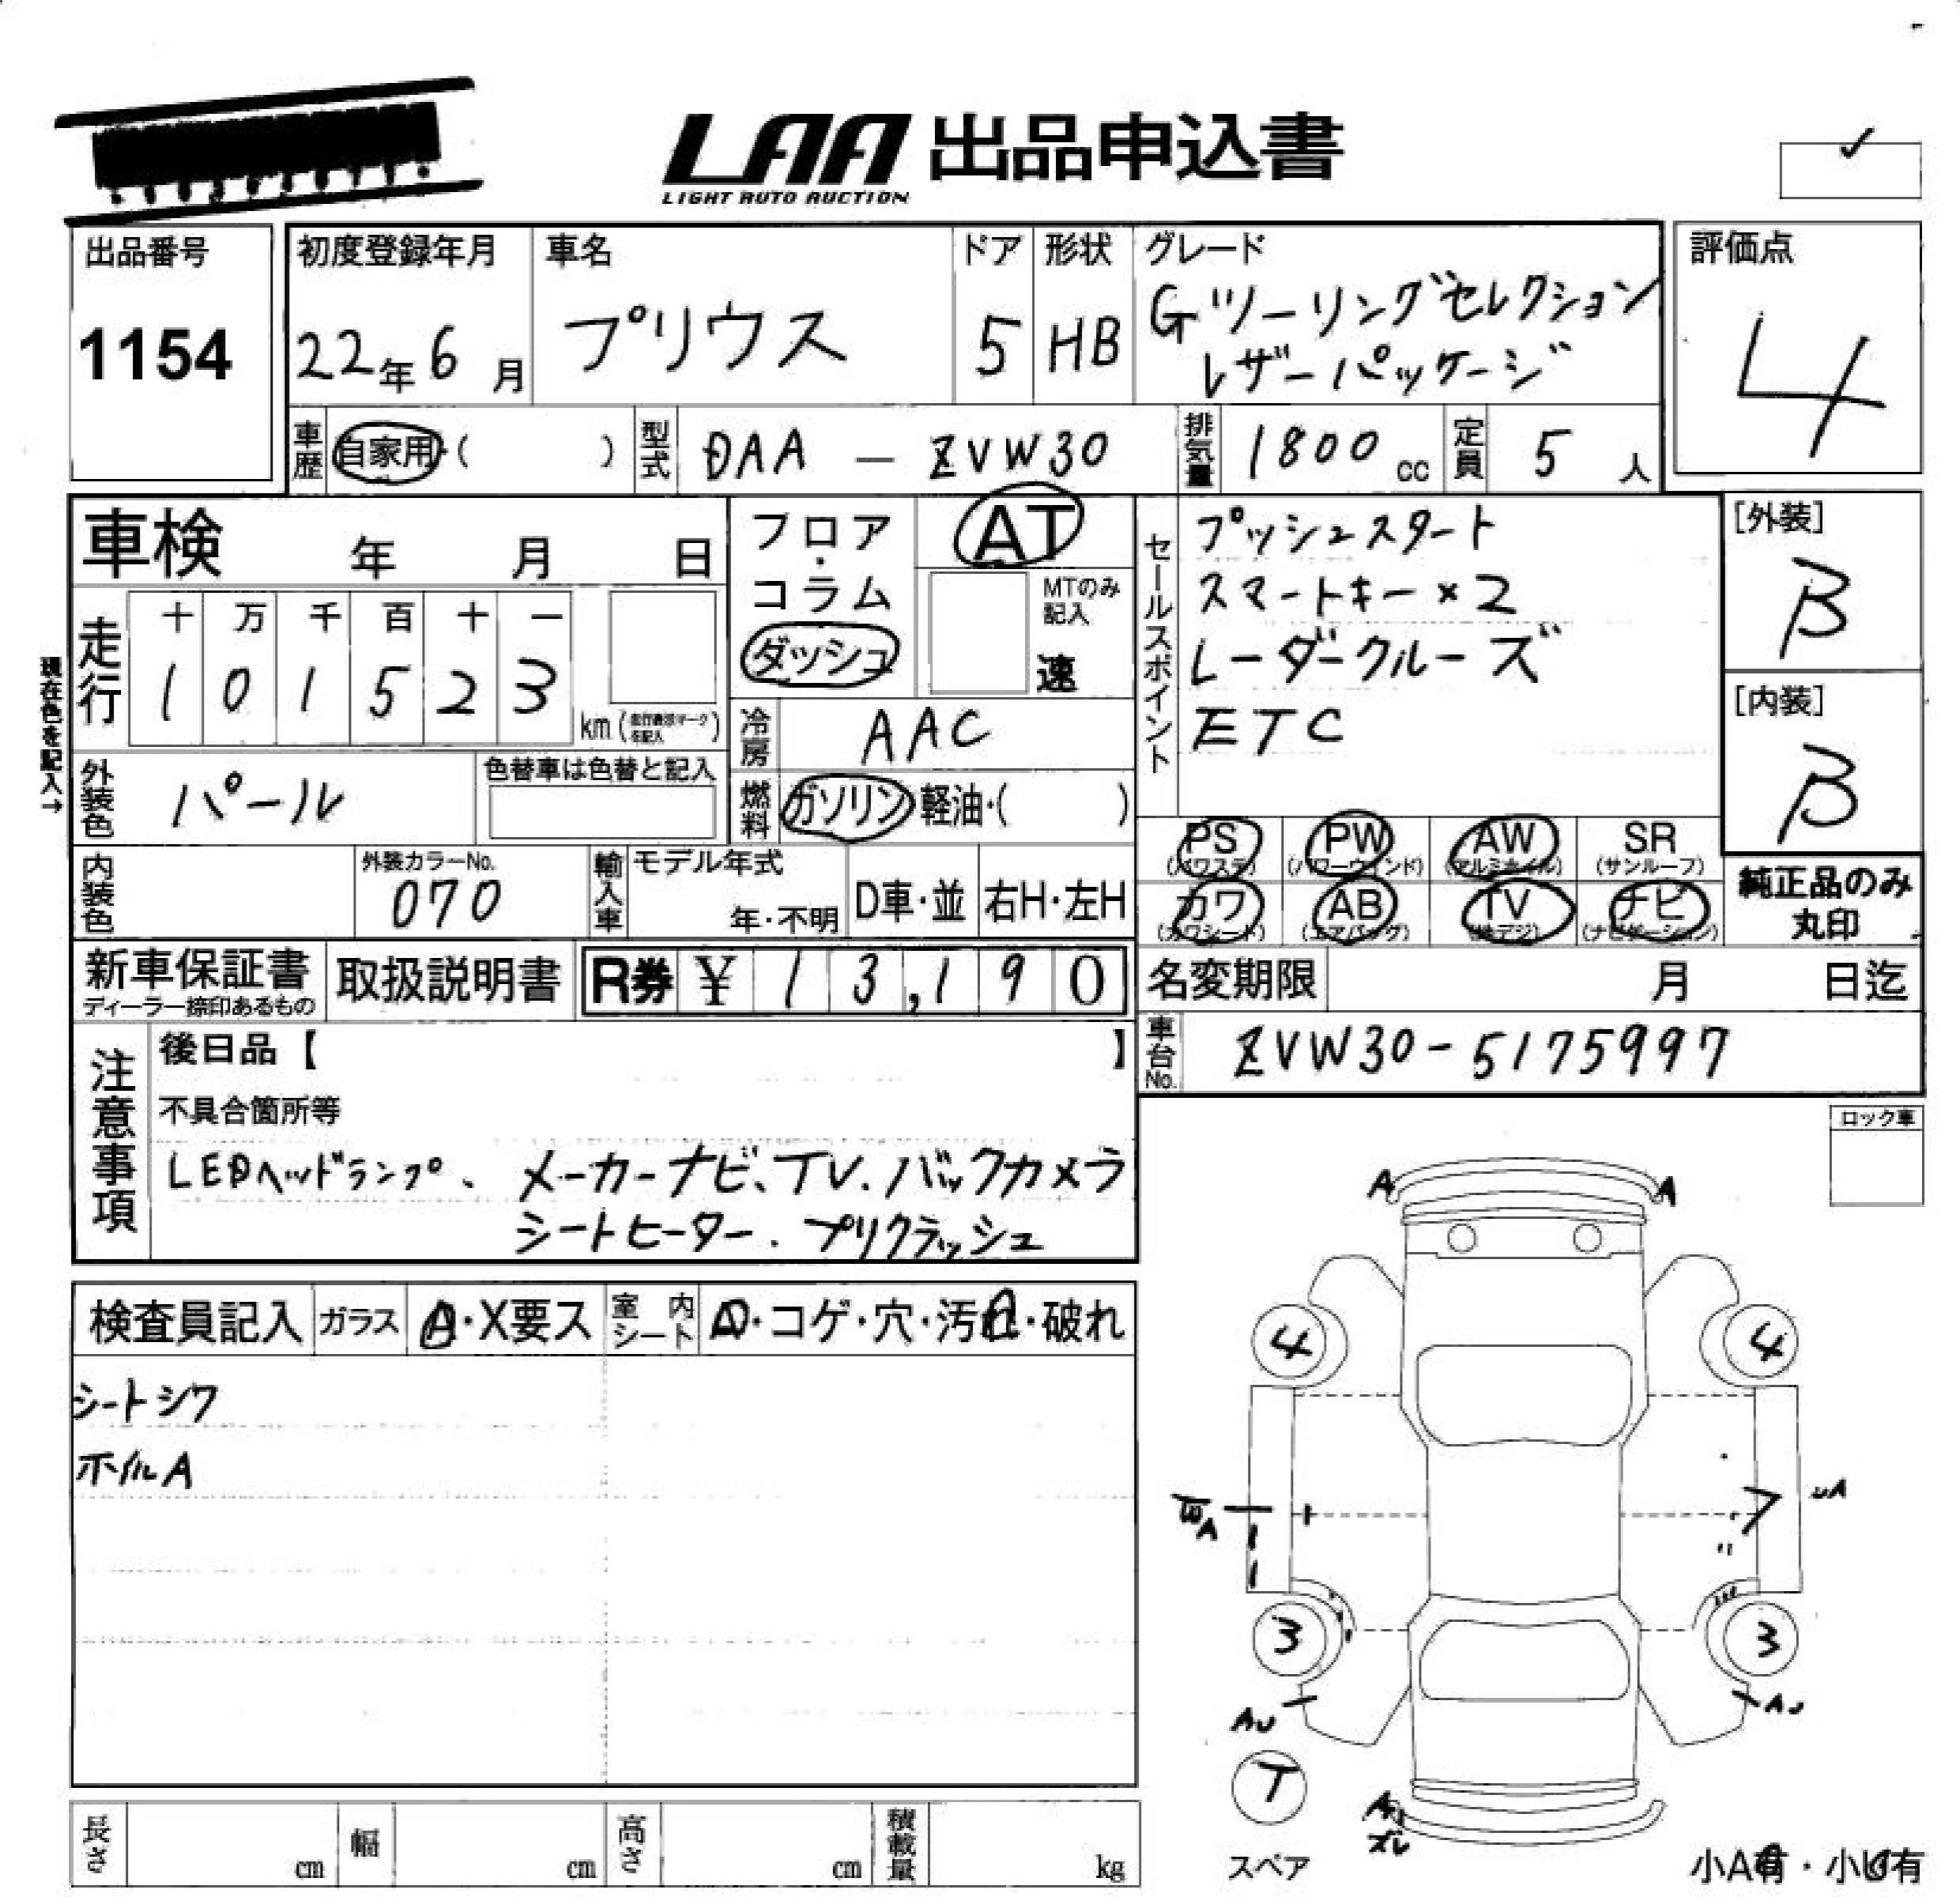 LAA 出品申込書
LIGHT AUTO AUCTION
出品番号
1154
初度登録年月
22年6月
車名
プリウス
ドア
5
形状
HB
グレード
Gツーリングセレクション
レザーパッケージ
評価点
4
車歴
自家用・( )
型式
DAA - ZVW30
排気量
1800 cc
定員
5 人
車検 年 月 日
フロア・コラム
ダッシュ
AT
MTのみ記入
速
セールスポイント
プッシュスタート
スマートキー×2
レーダークルーズ
ETC
[外装]
B
[内装]
B
現在色を記入→
走行
十 万 千 百 十 一
1 0 1 5 2 3
km
冷房
AAC
外装色
パール
色替車は色替と記入
燃料
ガソリン・軽油・( )
PS
(パワステ)
PW
(パワーウィンド)
AW
(アルミホイル)
SR
(サンルーフ)
内装色
外装カラーNo.
070
輸入車
モデル年式
年・不明
D車・並
右H・左H
カワ
(カワシート)
AB
(エアバッグ)
TV
(地デジ)
ナビ
(ナビゲーション)
純正品のみ
丸印
新車保証書
ディーラー捺印あるもの
取扱説明書
R券 ¥ 13,190
名変期限 月 日迄
注意事項
後日品【 】
車台No.
ZVW30-5175997
不具合箇所等
LEDヘッドランプ、メーカーナビ、TV、バックカメラ
シートヒーター、プリクラッシュ
ロック車
A A
検査員記入
ガラス
A・X要ス
室内シート
・コゲ・穴・汚れ・破れ
シートシワ
ホイルA
4 4
3 3
T
スペア
長さ cm
幅 cm
高さ cm
積載量 kg
小A有・小U有